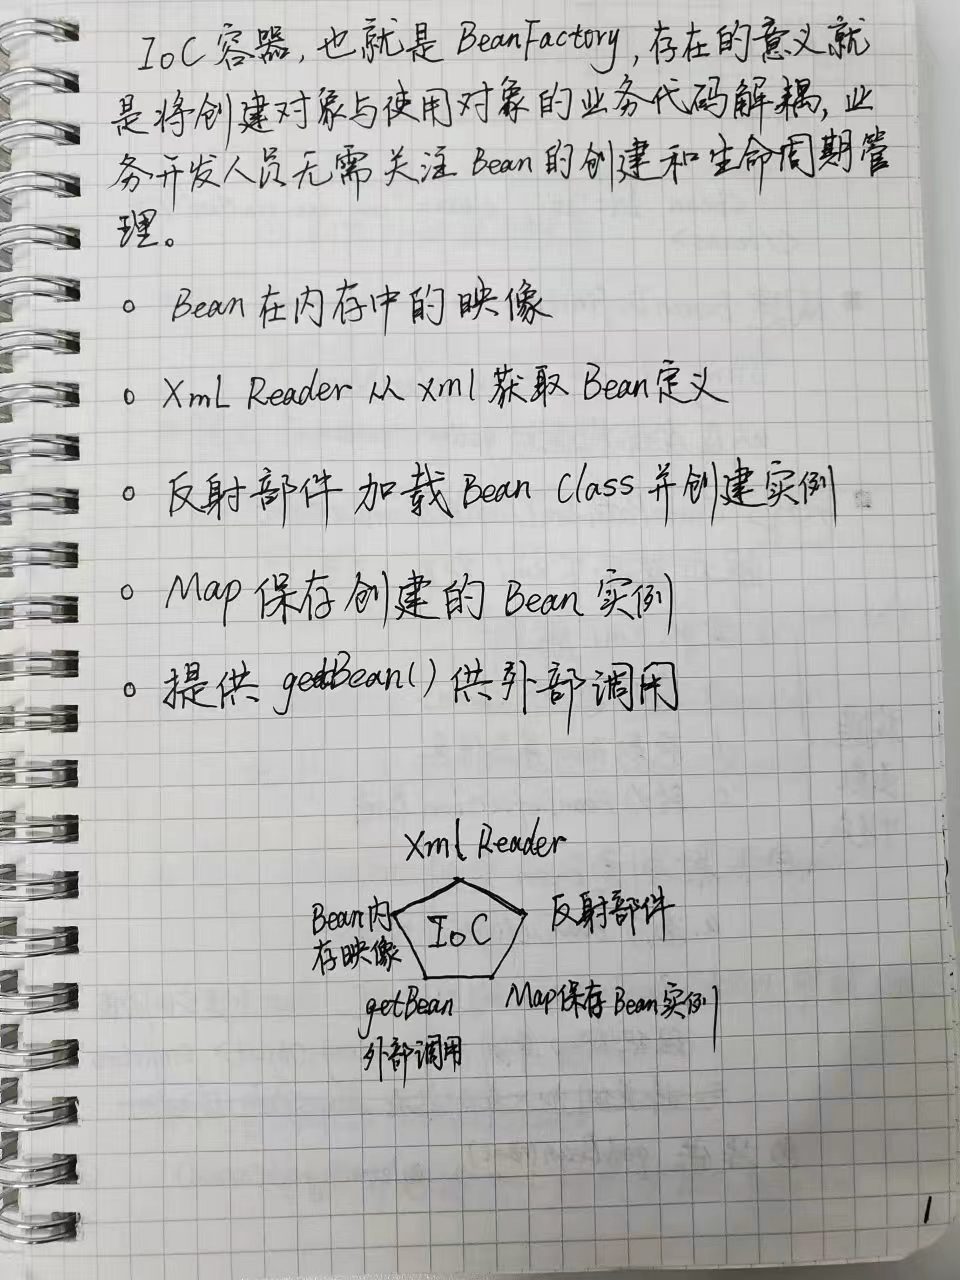 IoC 容器，也就是 BeanFactory，存在的意义就
是将创建对象与使用对象的业务代码解耦，业
务开发人员无需关注 Bean 的创建和生命周期管
理。
○ Bean 在内存中的映像
○ XmL Reader 从 xml 获取 Bean定义
○ 反射部件 加载 Bean Class 并创建实例
○ Map 保存创建的 Bean 实例
○ 提供 getBean() 供外部调用
Xml Reader
Bean内
存映像
IoC
反射部件
getBean
外部调用
Map保存 Bean 实例
1